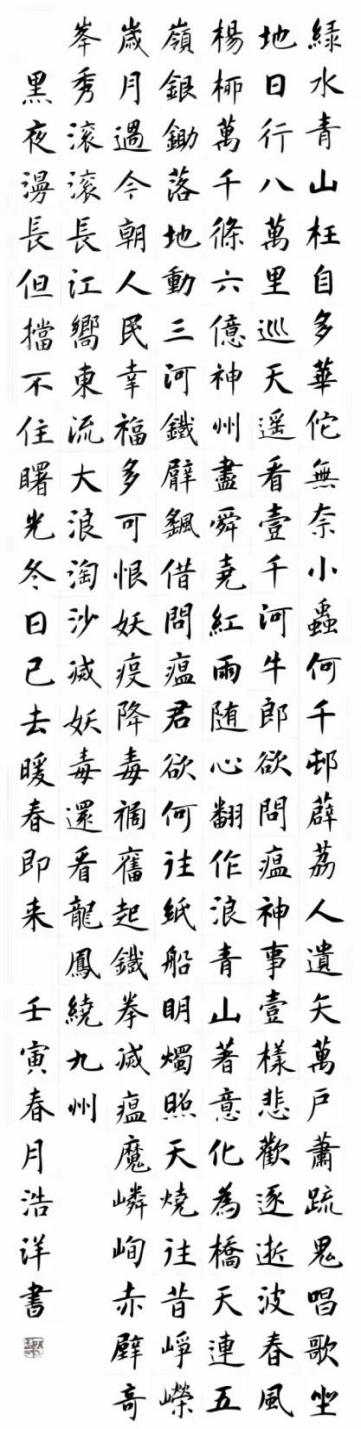 綠水青山枉自多華佗無奈小蟲何千邨薜荔人遺矢萬戶蕭疏鬼唱歌坐
地日行八萬里巡天遥看壹千河牛郎欲問瘟神事壹樣悲歡逐逝波春風
楊柳萬千條六億神州盡舜堯紅雨随心翻作浪青山著意化為橋天連五
嶺銀鋤落地動三河鐵臂颻借問瘟君欲何往紙船明燭照天燒往昔崢嶸
歲月過今朝人民幸福多可恨妖疫降毒禍舊起鐵拳滅瘟魔嶙峋赤壁奇
峯秀滚滚長江嚮東流大浪淘沙滅妖毒還看龍鳳繞九州
黑夜漫長但擋不住曙光冬日已去暖春即来 壬寅春月浩洋書